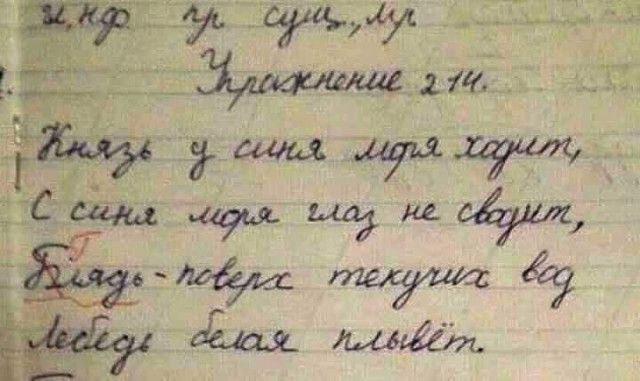 и,нф пр сущ., мр
Упражнение 214.
Князь у синя моря ходит,
С синя моря глаз не сводит,
Г
Блядь - поверх текучих вод
Лебедь белая плывёт.